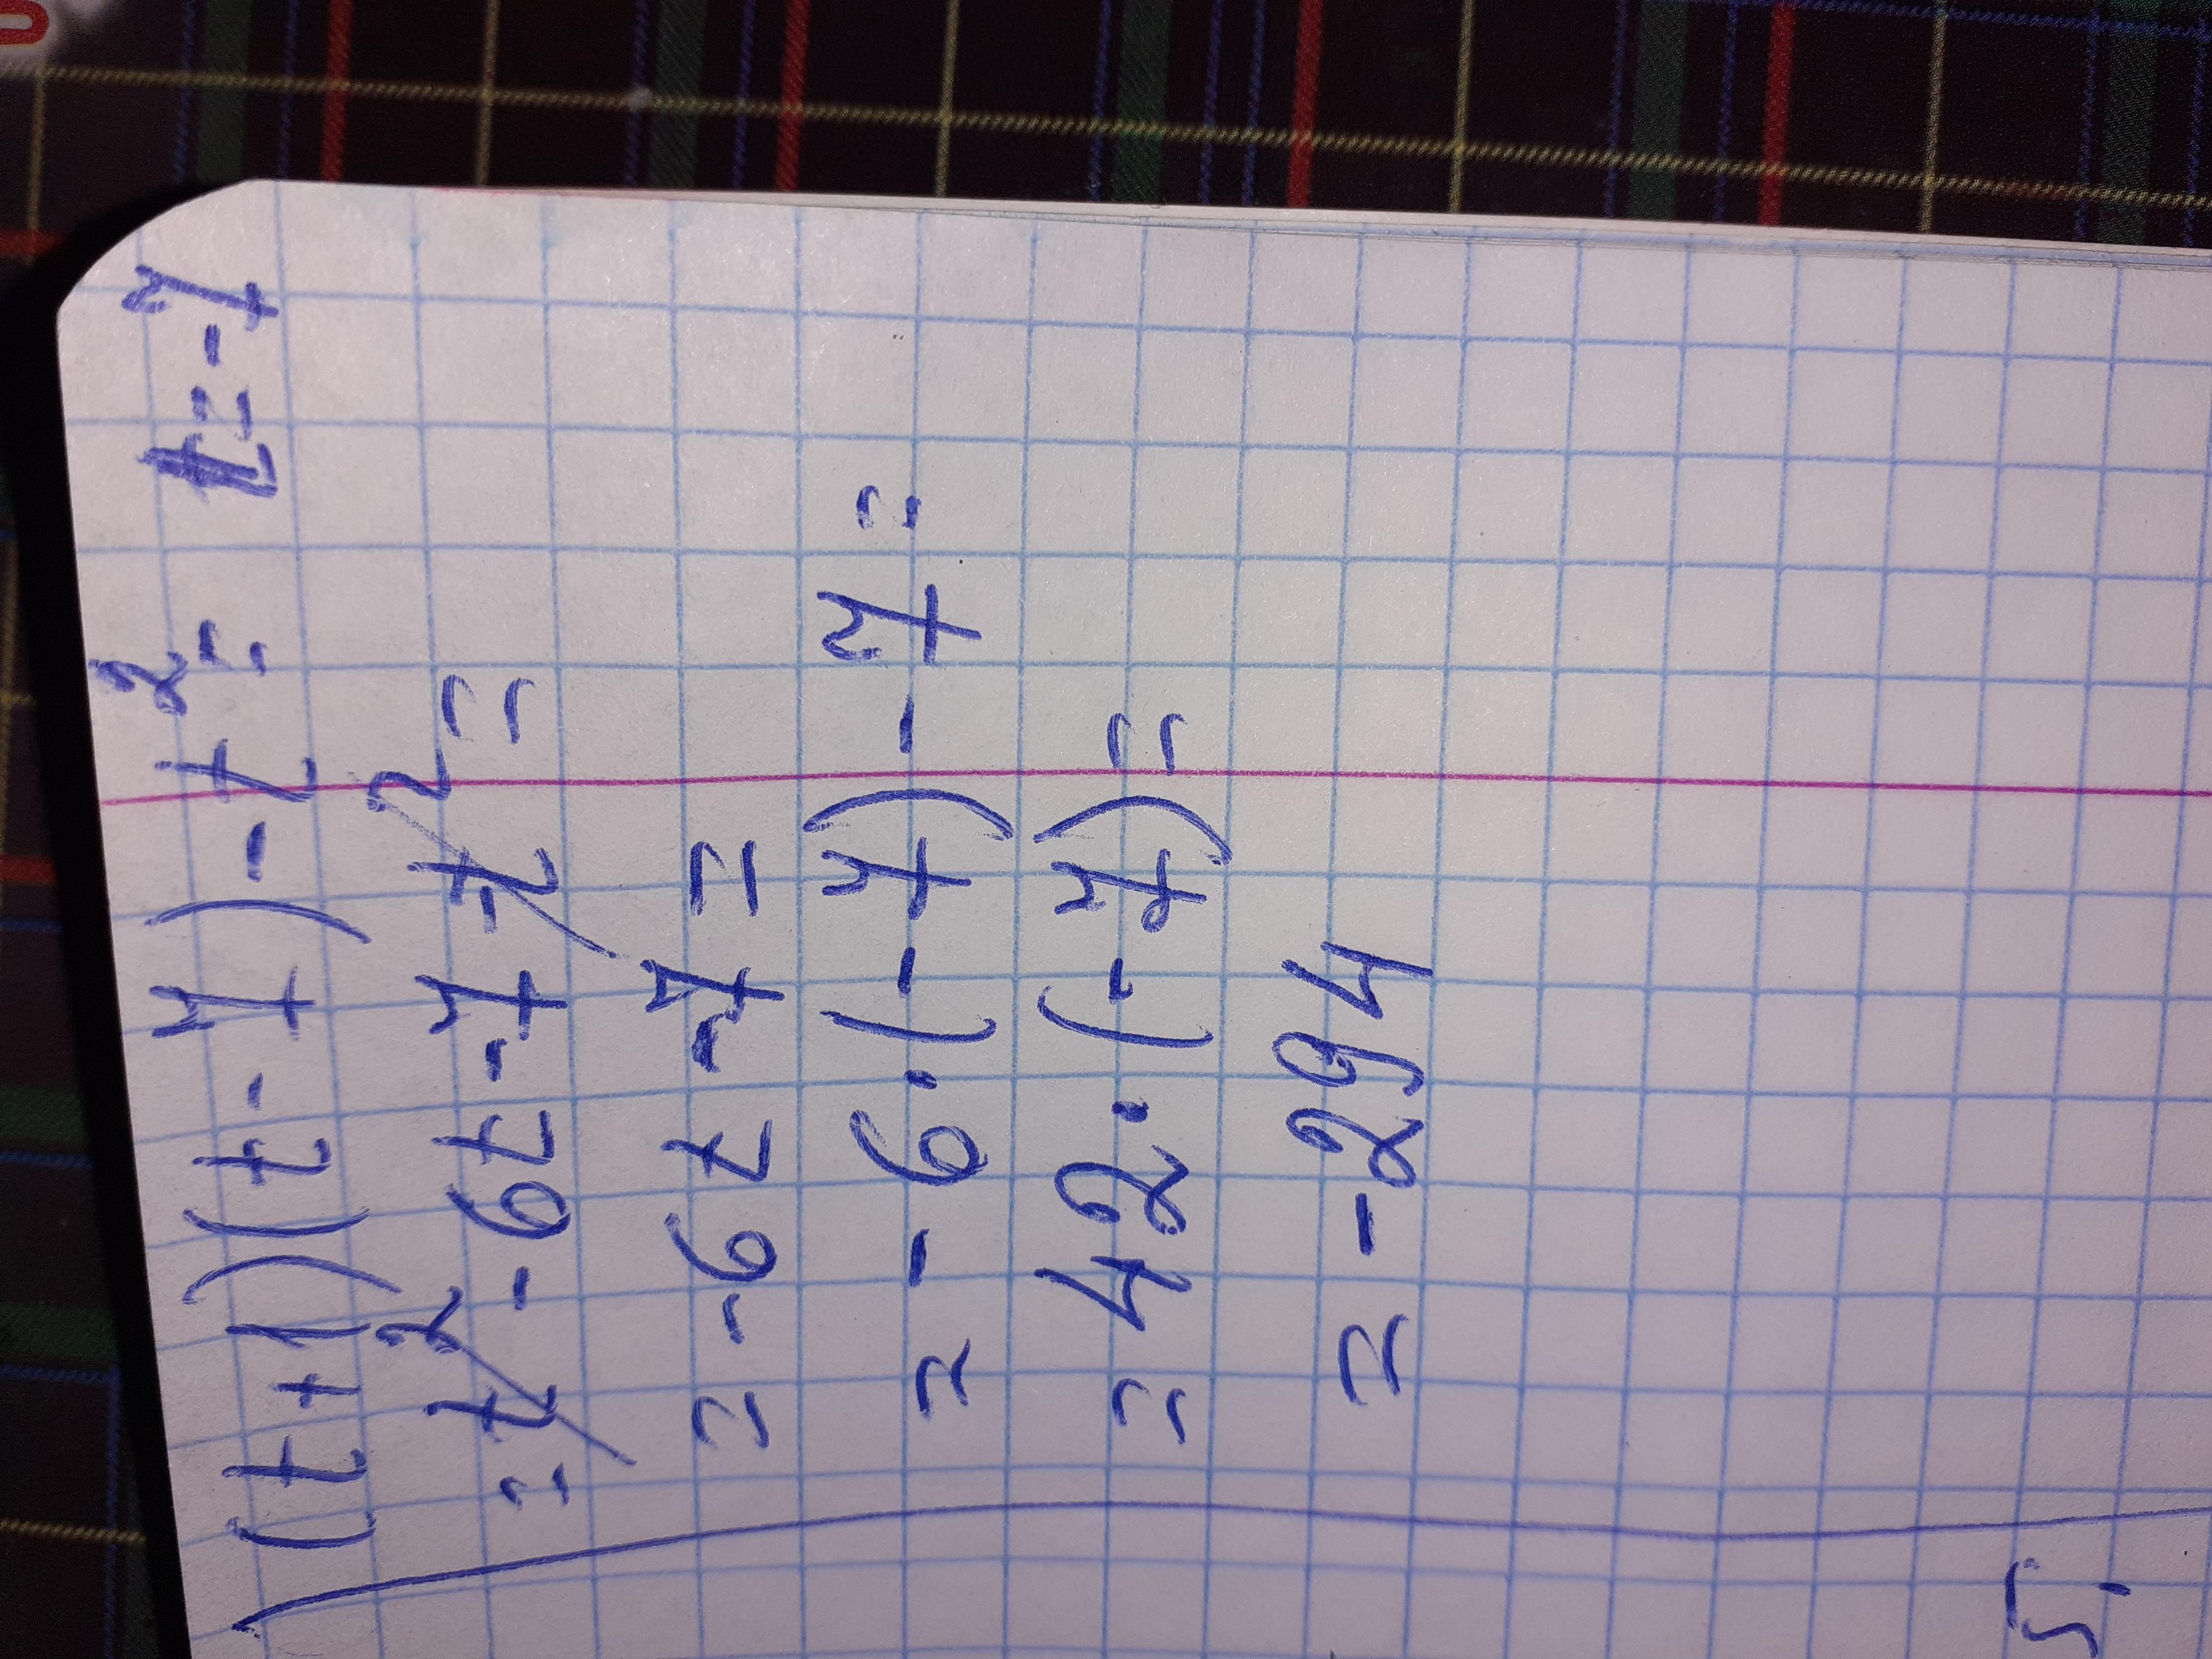 ) (t+1)(t-7)-t²= t=-7
=t²-6t-7-t²=
=-6t-7=
=-6·(-7)-7=
=42·(-7)=
=-294
5.